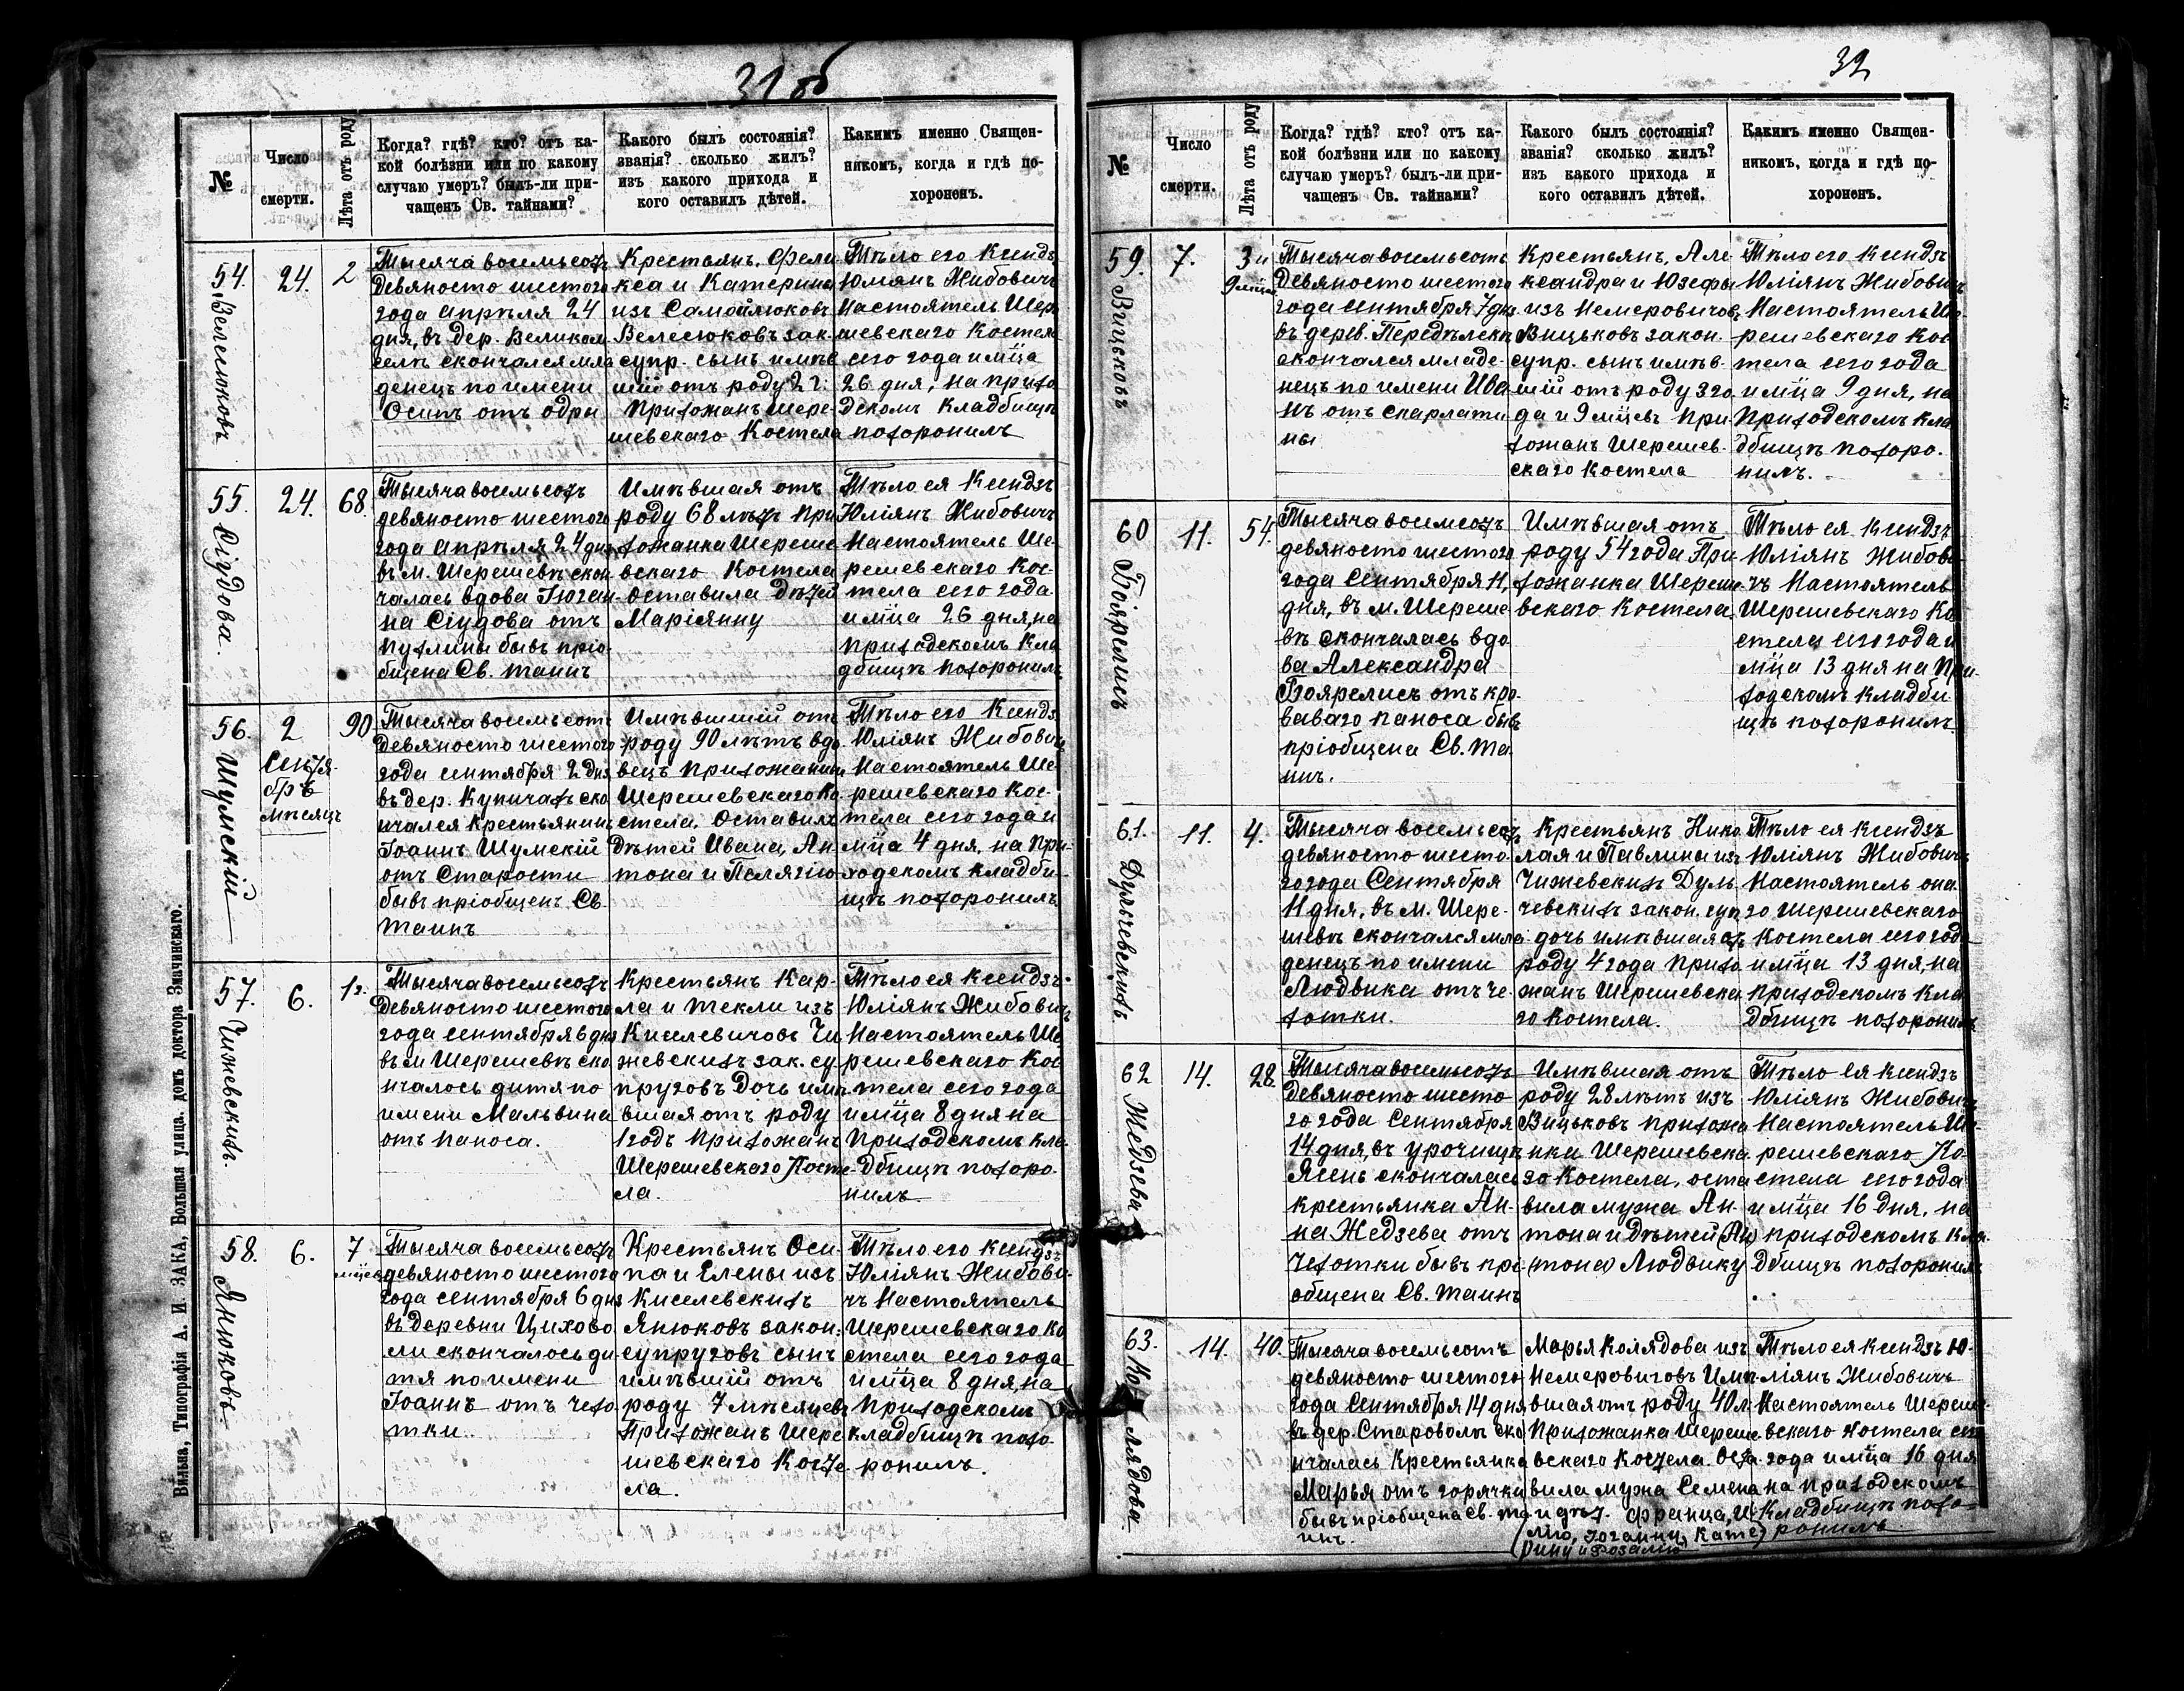 31 об
№
Число
смерти.
Лѣта отъ роду
Когда? гдѣ? кто? отъ ка-
кой болѣзни или по какому
случаю умеръ? былъ-ли при-
чащенъ Св. тайнами?
Какого былъ состоянія?
званія? сколько жилъ?
изъ какого прихода и
кого оставилъ дѣтей.
Какимъ именно Священ-
никомъ, когда и гдѣ по-
хороненъ.
54.
Велесюковъ
24.
2
Тысяча восемьсотъ
девяносто шестого
года апрѣля 24
дня, въ дер. Великом
селѣ скончался мла
денецъ по имени
Осипъ отъ одры
Крестьянъ, Фели
кса и Катерины
изъ Самойлюковъ
Велесюковъ зак.
супр. сынъ имѣв
шій отъ роду 2 г.
Прихожанъ Шере-
шевскаго Костела
Тѣло его Ксендзъ
Юліянъ Жибовичъ
Настоятель Шере
шевскаго Костела
сего года и мѣца
26 дня, на прихо
дскомъ Кладбищѣ
похоронилъ
55.
Сіудова.
24.
68.
Тысяча восемьсотъ
девяносто шестого
года апрѣля 24 дня
въ м. Шерешевѣ скон
чалась вдова Іоган-
на Сіудова отъ
пухлины бывъ пріо
бщена Св. таинъ
Имѣвшая отъ
роду 68 лѣтъ При
хожанка Шереше
вскаго Костела
оставила дѣтей
Маріянну
Тѣло ея Ксендзъ
Юліянъ Жибовичъ
Настоятель Ше-
решевскаго Кос-
тела сего года
и мѣца 26 дня, на
приходскомъ Кла
дбищѣ похоронилъ
56.
Шумскій
2
Сентя-
брь
мѣсяцъ
90
Тысяча восемьсотъ
девяносто шестого
года сентября 2 дня
въ дер. Купичахъ ско
нчался Крестьянинъ
Іоаннъ Шумскій
отъ Старости
бывъ пріобщенъ Св.
Таинъ
Имѣвшій отъ
роду 90 лѣтъ вдо-
вецъ прихожанинъ
Шерешевскаго Ко
стела. Оставилъ
Дѣтей Ивана, Ан
тона и Пелягію
Тѣло его Ксендз
Юліянъ Жибовичъ
Настоятель Ше
решевскаго Кос-
тела сего года и
мѣца 4 дня, на При-
ходскомъ кладби-
щѣ похоронилъ
57.
Чижевскихъ.
6.
1 г.
Тысяча восемьсотъ
девяносто шестого
года сентября 6 дня
въ м Шерешевѣ ско
нчалось дитя по
имени Мальвина
отъ поноса.
Крестьянъ Кар-
ла и Текли изъ
Киселевичовъ Чи
жевскихъ зак. су
пруговъ Дочь имѣ
вшая отъ роду
1 годъ Прихожанъ
Шерешевскаго Косте-
ла.
Тѣло ея Ксендзъ
Юліянъ Жибовичъ
Настоятель Ше
решевскаго Кос
тела сего года
и мѣца 8 дня на
Приходскомъ кла-
дбищѣ похоро-
нилъ
58.
Янюковъ
6.
7
мѣцев
Тысяча восемьсотъ
девяносто шестого
года сентября 6 дня
въ деревни Цихово
ли скончалось ди
тя по имени
Іоаннъ отъ чехо
тки.
Крестьянъ Оси-
па и Елены изъ
Киселевскихъ
Янюковъ закон.
супруговъ сынъ
имѣвшій отъ
роду 7 мѣсяцевъ
Прихожанъ Шере
шевскаго Косте
ла.
Тѣло его Ксендзъ
Юліянъ Жибови-
чъ Настоятель
Шерешевскаго Ко
стела сего года
и мѣца 8 дня, на
Приходскомъ
кладбищѣ похо-
ронилъ.
Вильна, Типографія А. И. ЗАКА, Большая улица, домъ доктора Змачинскаго.
32
№
Число
смерти.
Лѣта отъ роду
Когда? гдѣ? кто? отъ ка-
кой болѣзни или по какому
случаю умеръ? былъ-ли при-
чащенъ Св. тайнами?
Какого былъ состоянія?
званія? сколько жилъ?
изъ какого прихода и
кого оставилъ дѣтей.
Какимъ именно Священ-
никомъ, когда и гдѣ по-
хороненъ.
59.
Вицьковъ
7.
3 и
9 мѣцев
Тысяча восемьсотъ
девяносто шестого
года сентября 7 дня
въ дерев. Передѣлскѣ
скончался младе-
нецъ по имени Ива
нъ отъ скарлати
ны
Крестьянъ, Але
ксандра и Юзефы
изъ Немеровичовъ
Вицьковъ закон.
супр. сынъ имѣв-
шій отъ роду 3 го
да и 9 мѣцевъ При-
хожанъ Шерешев-
скаго Костела
Тѣло его Ксендзъ
Юліянъ Жибовичъ
Настоятель Ше-
решевскаго Кос
тела сего года
и мѣца 9 дня, на
Приходскомъ кла
дбищѣ похоро-
нилъ.
60
Боярелисъ
11.
54.
Тысяча восемсотъ
девяносто шестого
года Сентября 11,
дня, въ м. Шереше
вѣ скончалась вдо
ва Александра
Боярелисъ отъ кро-
ваваго поноса быв
пріобщена Св. Та
инъ.
Имѣвшая отъ
роду 54 года При
хожанка Шереше
вскаго Костела.
Тѣло ея Ксендзъ
Юліянъ Жибови
чъ Настоятель
Шерешевскаго Ко
стела сего года и
мѣца 13 дня на При-
ходскомъ кладби
щѣ похоронилъ
61.
Дульчевскихъ.
11.
4.
Тысяча восемьсотъ
девяносто шесто-
го года Сентября
11 дня, въ м. Шере-
шевѣ скончался мла
денецъ по имени
Людвика отъ че-
хотки.
Крестьянъ Нико
лая и Павлины изъ
Чижевскихъ Дуль
чевскихъ закон. суп
дочь имѣвшая отъ
роду 4 года Прихо
жанъ Шерешевска
го Костела.
Тѣло ея Ксендзъ
Юліянъ Жибовичъ
Настоятель она-
го Шерешевскаго
Костела сего года
и мѣца 13 дня, на
Приходскомъ кла
дбищѣ похоронилъ
62
Жедзева
14.
28.
Тысяча восемьсотъ
Девяносто шесто
го года Сентября
14 дня, въ урочищѣ
Ясень скончалась
крестьянка Ан-
на Жедзева отъ
Чехотки бывъ прі-
общена Св. Таинъ
Имѣвшая отъ
роду 28 лѣтъ изъ
Вицьковъ прихожа
нка Шерешевска
го Костела, оста
вила мужа Ан-
тона и Дѣтей (Ан)
(тона) Людвику
Тѣло ея Ксендзъ
Юліянъ Жибовичъ
Настоятель Ше-
решевскаго Ко-
стела сего года
и мѣца 16 дня, на
приходскомъ кла
дбищѣ похоронилъ
63.
Колядова
14.
40.
Тысяча восемьсотъ
девяносто шестого
года Сентября 14 дня
въ дер. Староволѣ ско
нчалась Крестьянка
Марья отъ горячки
бывъ пріобщена Св. та
инъ.
Марья Колядова изъ
Немеровичовъ Имѣ-
вшая отъ роду 40 л.
Прихожанка Шереше
вскаго Костела. Оста-
вила мужа Семена
и дѣт. Франца, Ю
лію, Іоганну, Кате
рину и Розалію
Тѣло ея Ксендзъ Ю-
ліянъ Жибовичъ
Настоятель Шереше-
вскаго Костела сего
года и мѣца 16 дня
на Приходскомъ
Кладбищѣ похо-
ронилъ